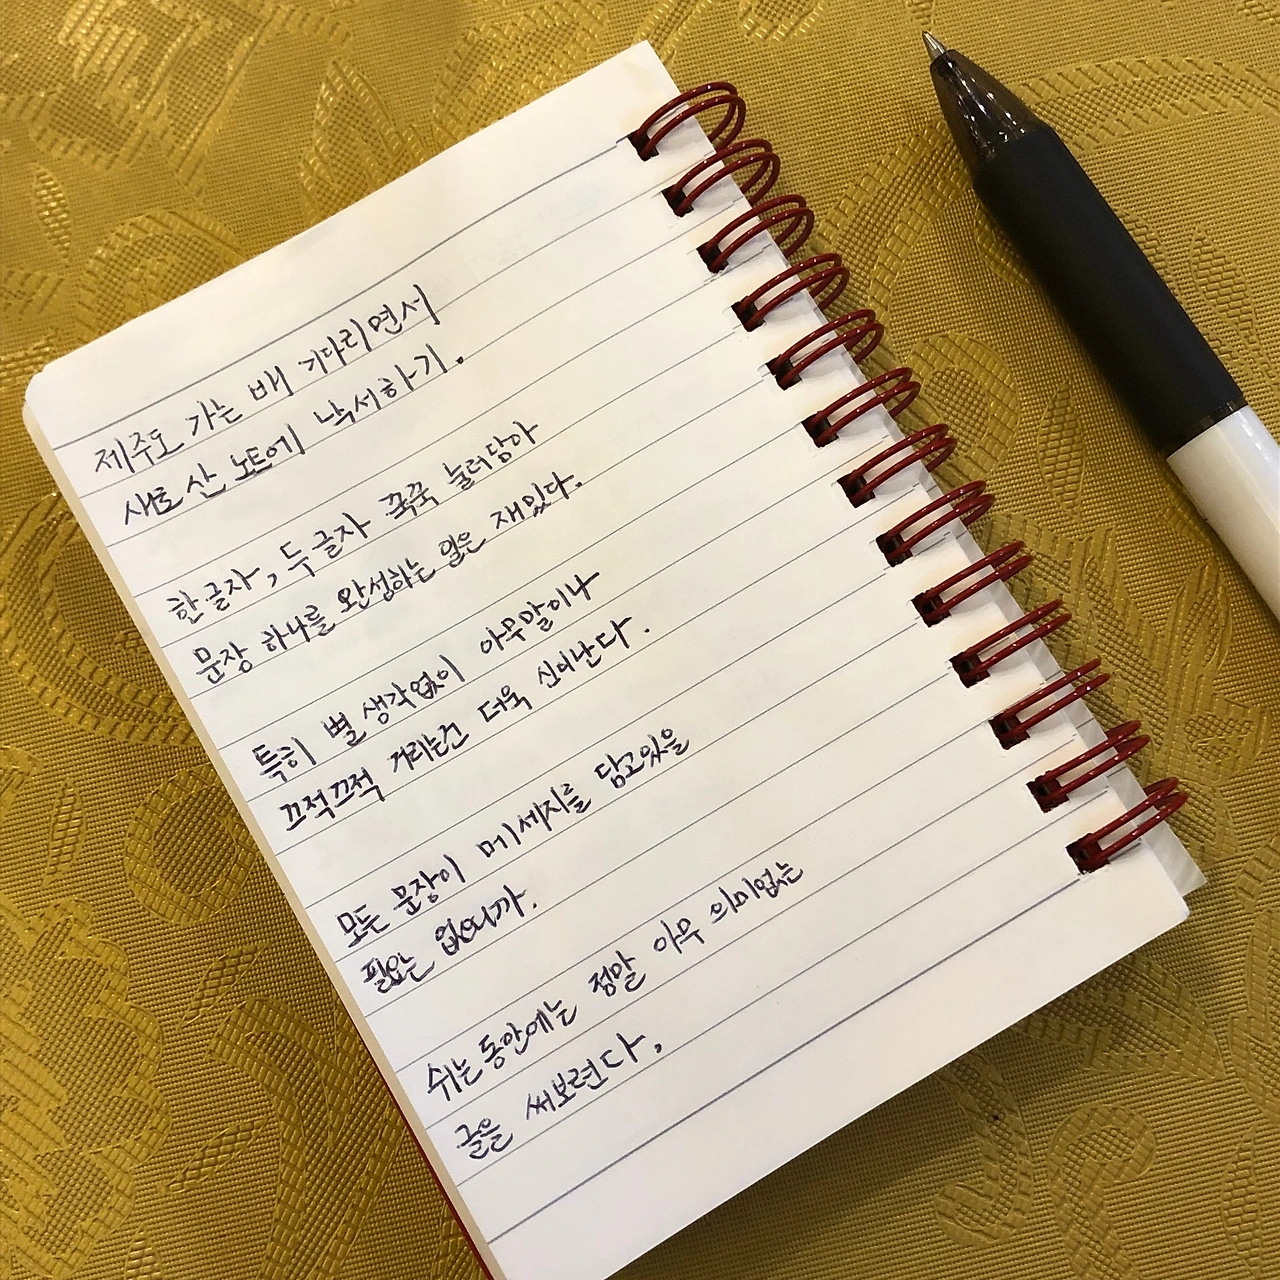 제주도 가는 배 기다리면서
새로 산 노트에 낙서하기.
한글자, 두글자 꾹꾹 눌러담아
문장 하나를 완성하는 일은 재밌다.
특히 별 생각없이 아무말이나
끄적끄적 거리는건 더욱 신이난다.
모든 문장이 메세지를 담고있을
필요는 없으니까.
쉬는동안에는 정말 아무 의미없는
글을 써보련다.